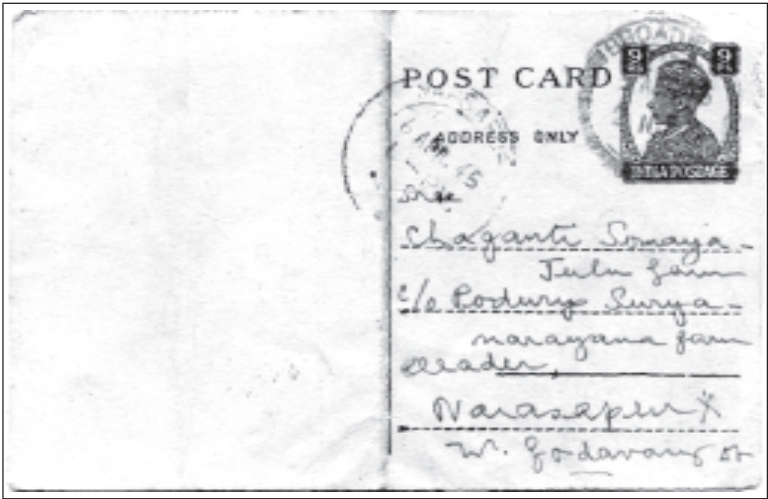 POST CARD
9 9
ADDRESS ONLY
INDIA POSTAGE
6 APR 45
Sree
Chaganti Somaya-
Julu garu
c/o Poduru Surya-
narayana garu
Pleader,
Narasapur X
W. Godavari Dt